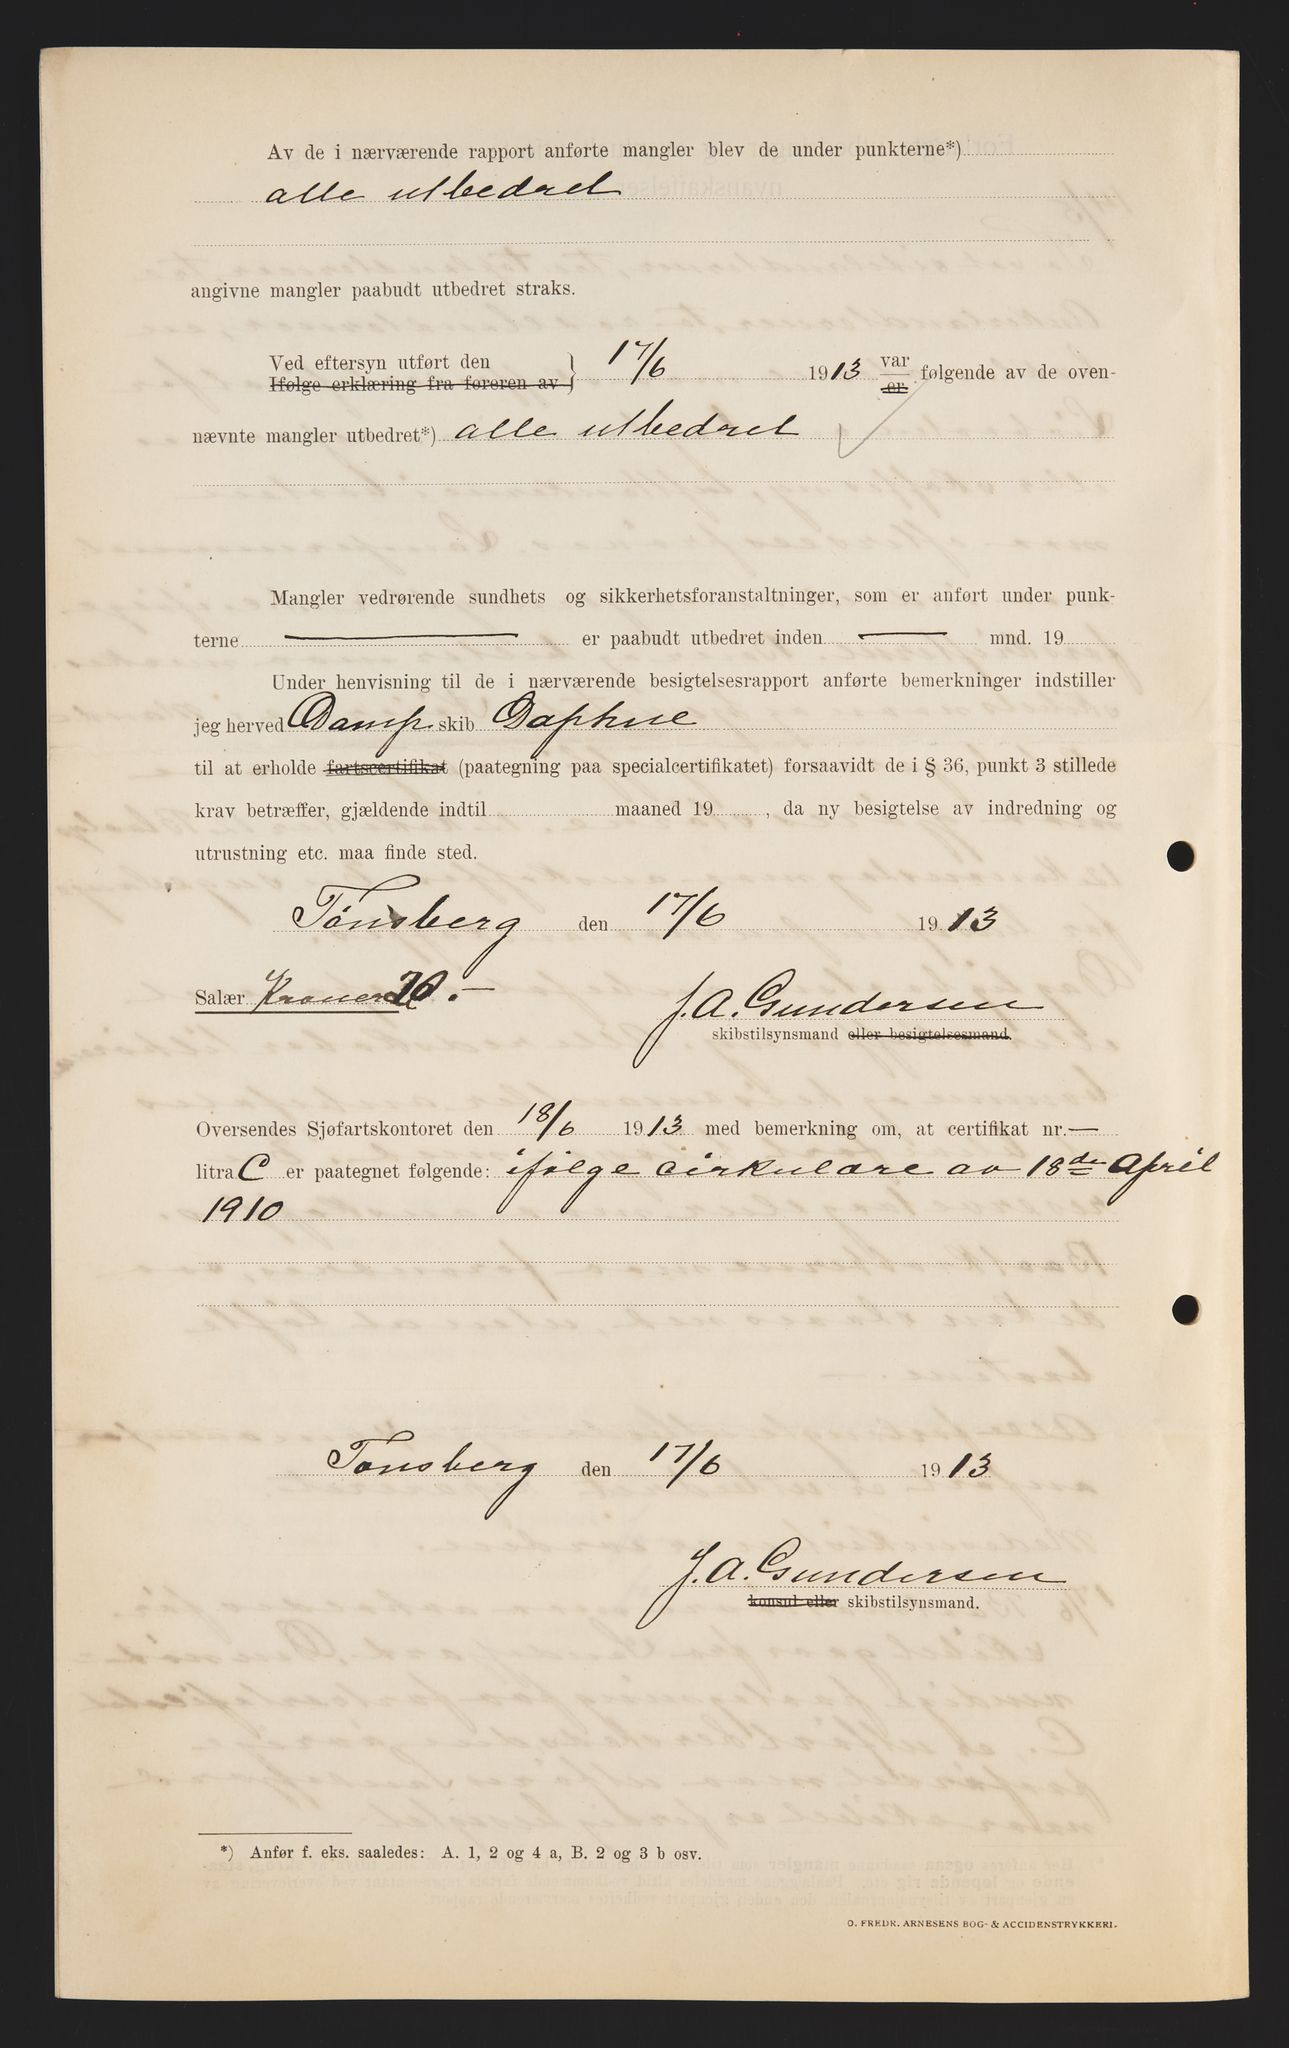 Av de i nærværende rapport anførte mangler blev de under punkterne*)
alle utbedret
angivne mangler paabudt utbedret straks.
Ved eftersyn utført den
Ifølge erklæring fra føreren av } 17/6 1913 var er følgende av de oven-
nævnte mangler utbedret*) alle utbedret
Mangler vedrørende sundhets og sikkerhetsforanstaltninger, som er anført under punk-
terne — er paabudt utbedret inden — mnd. 19
Under henvisning til de i nærværende besigtelsesrapport anførte bemerkninger indstiller
jeg herved Damp skib Daphne
til at erholde fartscertifikat (paategning paa specialcertifikatet) forsaavidt de i § 36, punkt 3 stillede
krav betræffer, gjældende indtil maaned 19 , da ny besigtelse av indredning og
utrustning etc. maa finde sted.
Tønsberg den 17/6 1913
Salær Kroner .—
J. A. Gundersen
skibstilsynsmand eller besigtelsesmand.
Oversendes Sjøfartskontoret den 18/6 1913 med bemerkning om, at certifikat nr. —
litra C er paategnet følgende: ifølge cirkulære av 18de April
1910
Tønsberg den 17/6 1913
J. A. Gundersen
konsul eller skibstilsynsmand.
*) Anfør f. eks. saaledes: A. 1, 2 og 4 a, B. 2 og 3 b osv.
O. FREDR. ARNESENS BOG- & ACCIDENSTRYKKERI.